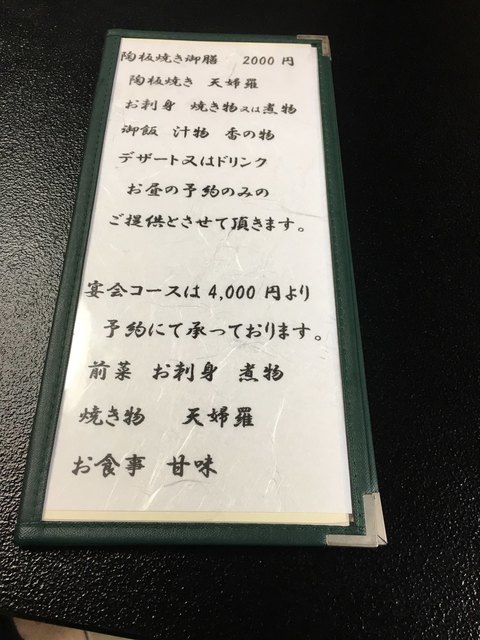 陶板焼き御膳 2000円
陶板焼き 天婦羅
お刺身 焼き物又は煮物
御飯 汁物 香の物
デザート又はドリンク
お昼の予約のみの
ご提供とさせて頂きます。
宴会コースは4,000円より
予約にて承っております。
前菜 お刺身 煮物
焼き物 天婦羅
お食事 甘味